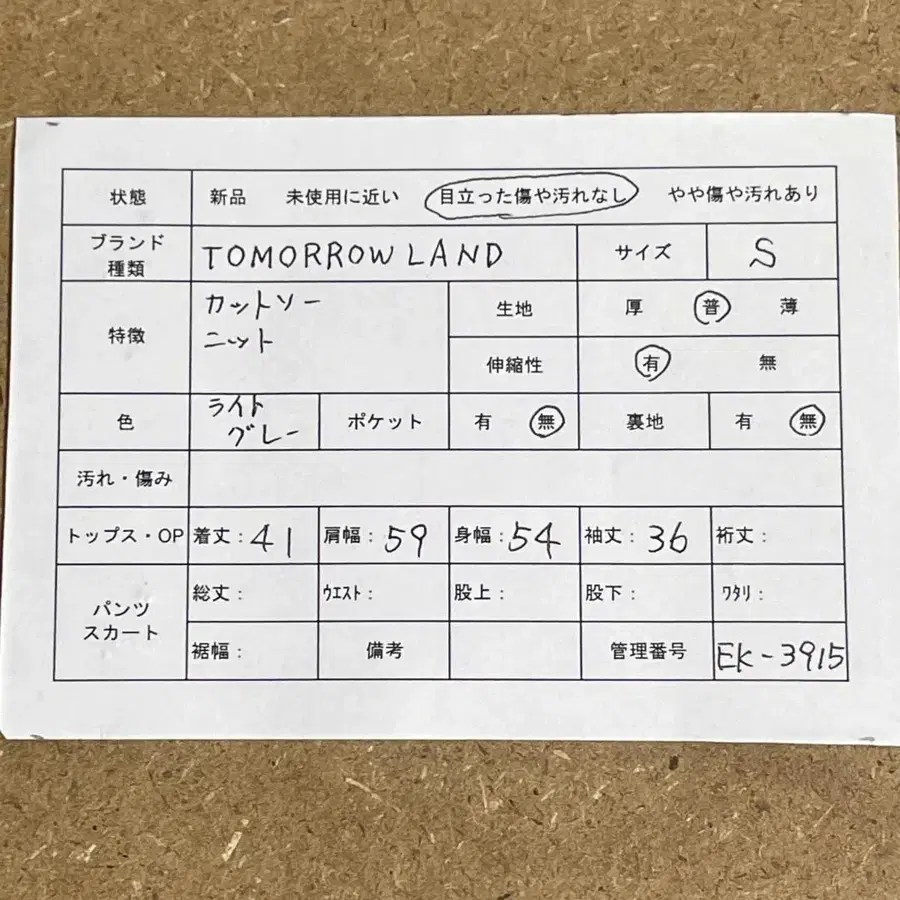 状態 新品 未使用に近い 目立った傷や汚れなし やや傷や汚れあり
ブランド
種類 TOMORROW LAND サイズ S
特徴 カットソー
ニット
生地 厚 普 薄
伸縮性 有 無
色 ライト
グレー ポケット 有 無 裏地 有 無
汚れ・傷み
トップス・OP 着丈:41 肩幅:59 身幅:54 袖丈:36 裄丈:
パンツ
スカート
総丈: ウエスト: 股上: 股下: ワタリ:
裾幅: 備考 管理番号 EK-3915